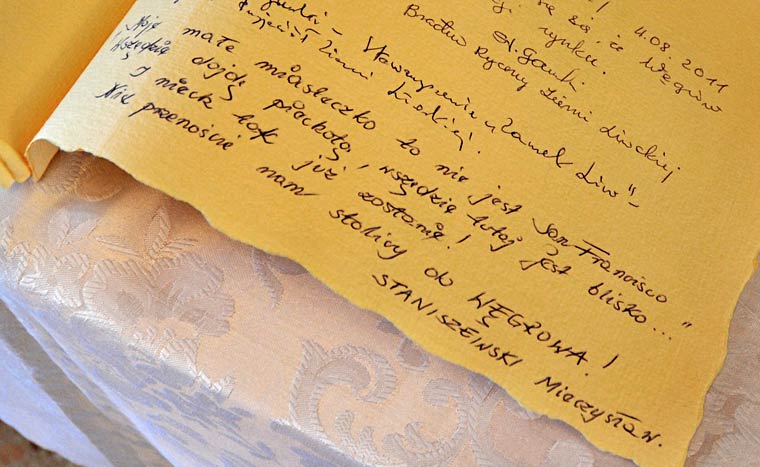 4.08.2011
się, że Węgrów
rynku.
Bractwo Rycerzy Ziemi Liwskiej
Stowarzyszenie "Zamek Liw" -
Ziemi Liwskiej.
Moje małe miasteczko to nie jest San Francisco
Wszędzie dojdę piechotą, wszędzie tutaj jest blisko..."
I niech tak już zostanie!
Nie przenoście nam stolicy do WĘGROWA!
STANISZEWSKI Mieczysław.